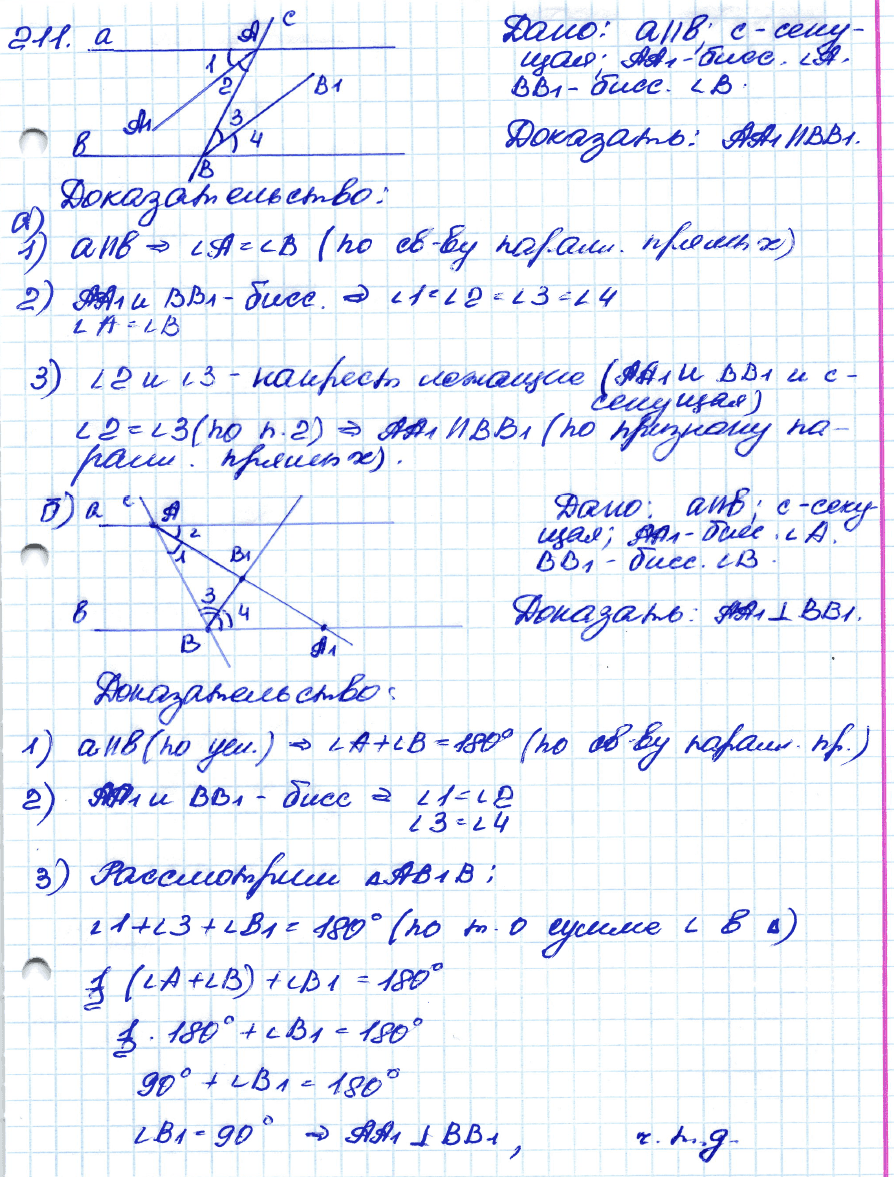 211. a A c
1
2 B1
A1 3 4
в B
Дано: a||в; c-секу-
щая; AA1-бисс. ∠A.
BB1-бисс. ∠B.
Доказать: AA1||BB1.
Доказательство:
а)
1) a||в ⇒ ∠A=∠B (по св-ву паралл. прямых)
2) AA1 и BB1-бисс. ⇒ ∠1=∠2=∠3=∠4
∠A=∠B
3) ∠2 и ∠3 - накрест лежащие (AA1 и BB1 и c-
секущая)
∠2=∠3(по п.2) ⇒ AA1||BB1 (по признаку па-
ралл. прямых).
б) a c A 2
1 B1
в 3 4
B A1
Дано: a||в; c-секу-
щая; AA1-бисс. ∠A.
BB1-бисс. ∠B.
Доказать: AA1⊥BB1.
Доказательство:
1) a||в(по усл.) ⇒ ∠A+∠B=180° (по св-ву паралл. пр.)
2) AA1 и BB1-бисс ⇒ ∠1=∠2
∠3=∠4
3) Рассмотрим △AB1B:
∠1+∠3+∠B1=180° (по т. о сумме ∠ в △)
1/2 (∠A+∠B)+∠B1=180°
1/2 · 180°+∠B1=180°
90°+∠B1=180°
∠B1=90° ⇒ AA1⊥BB1, ч.т.д.